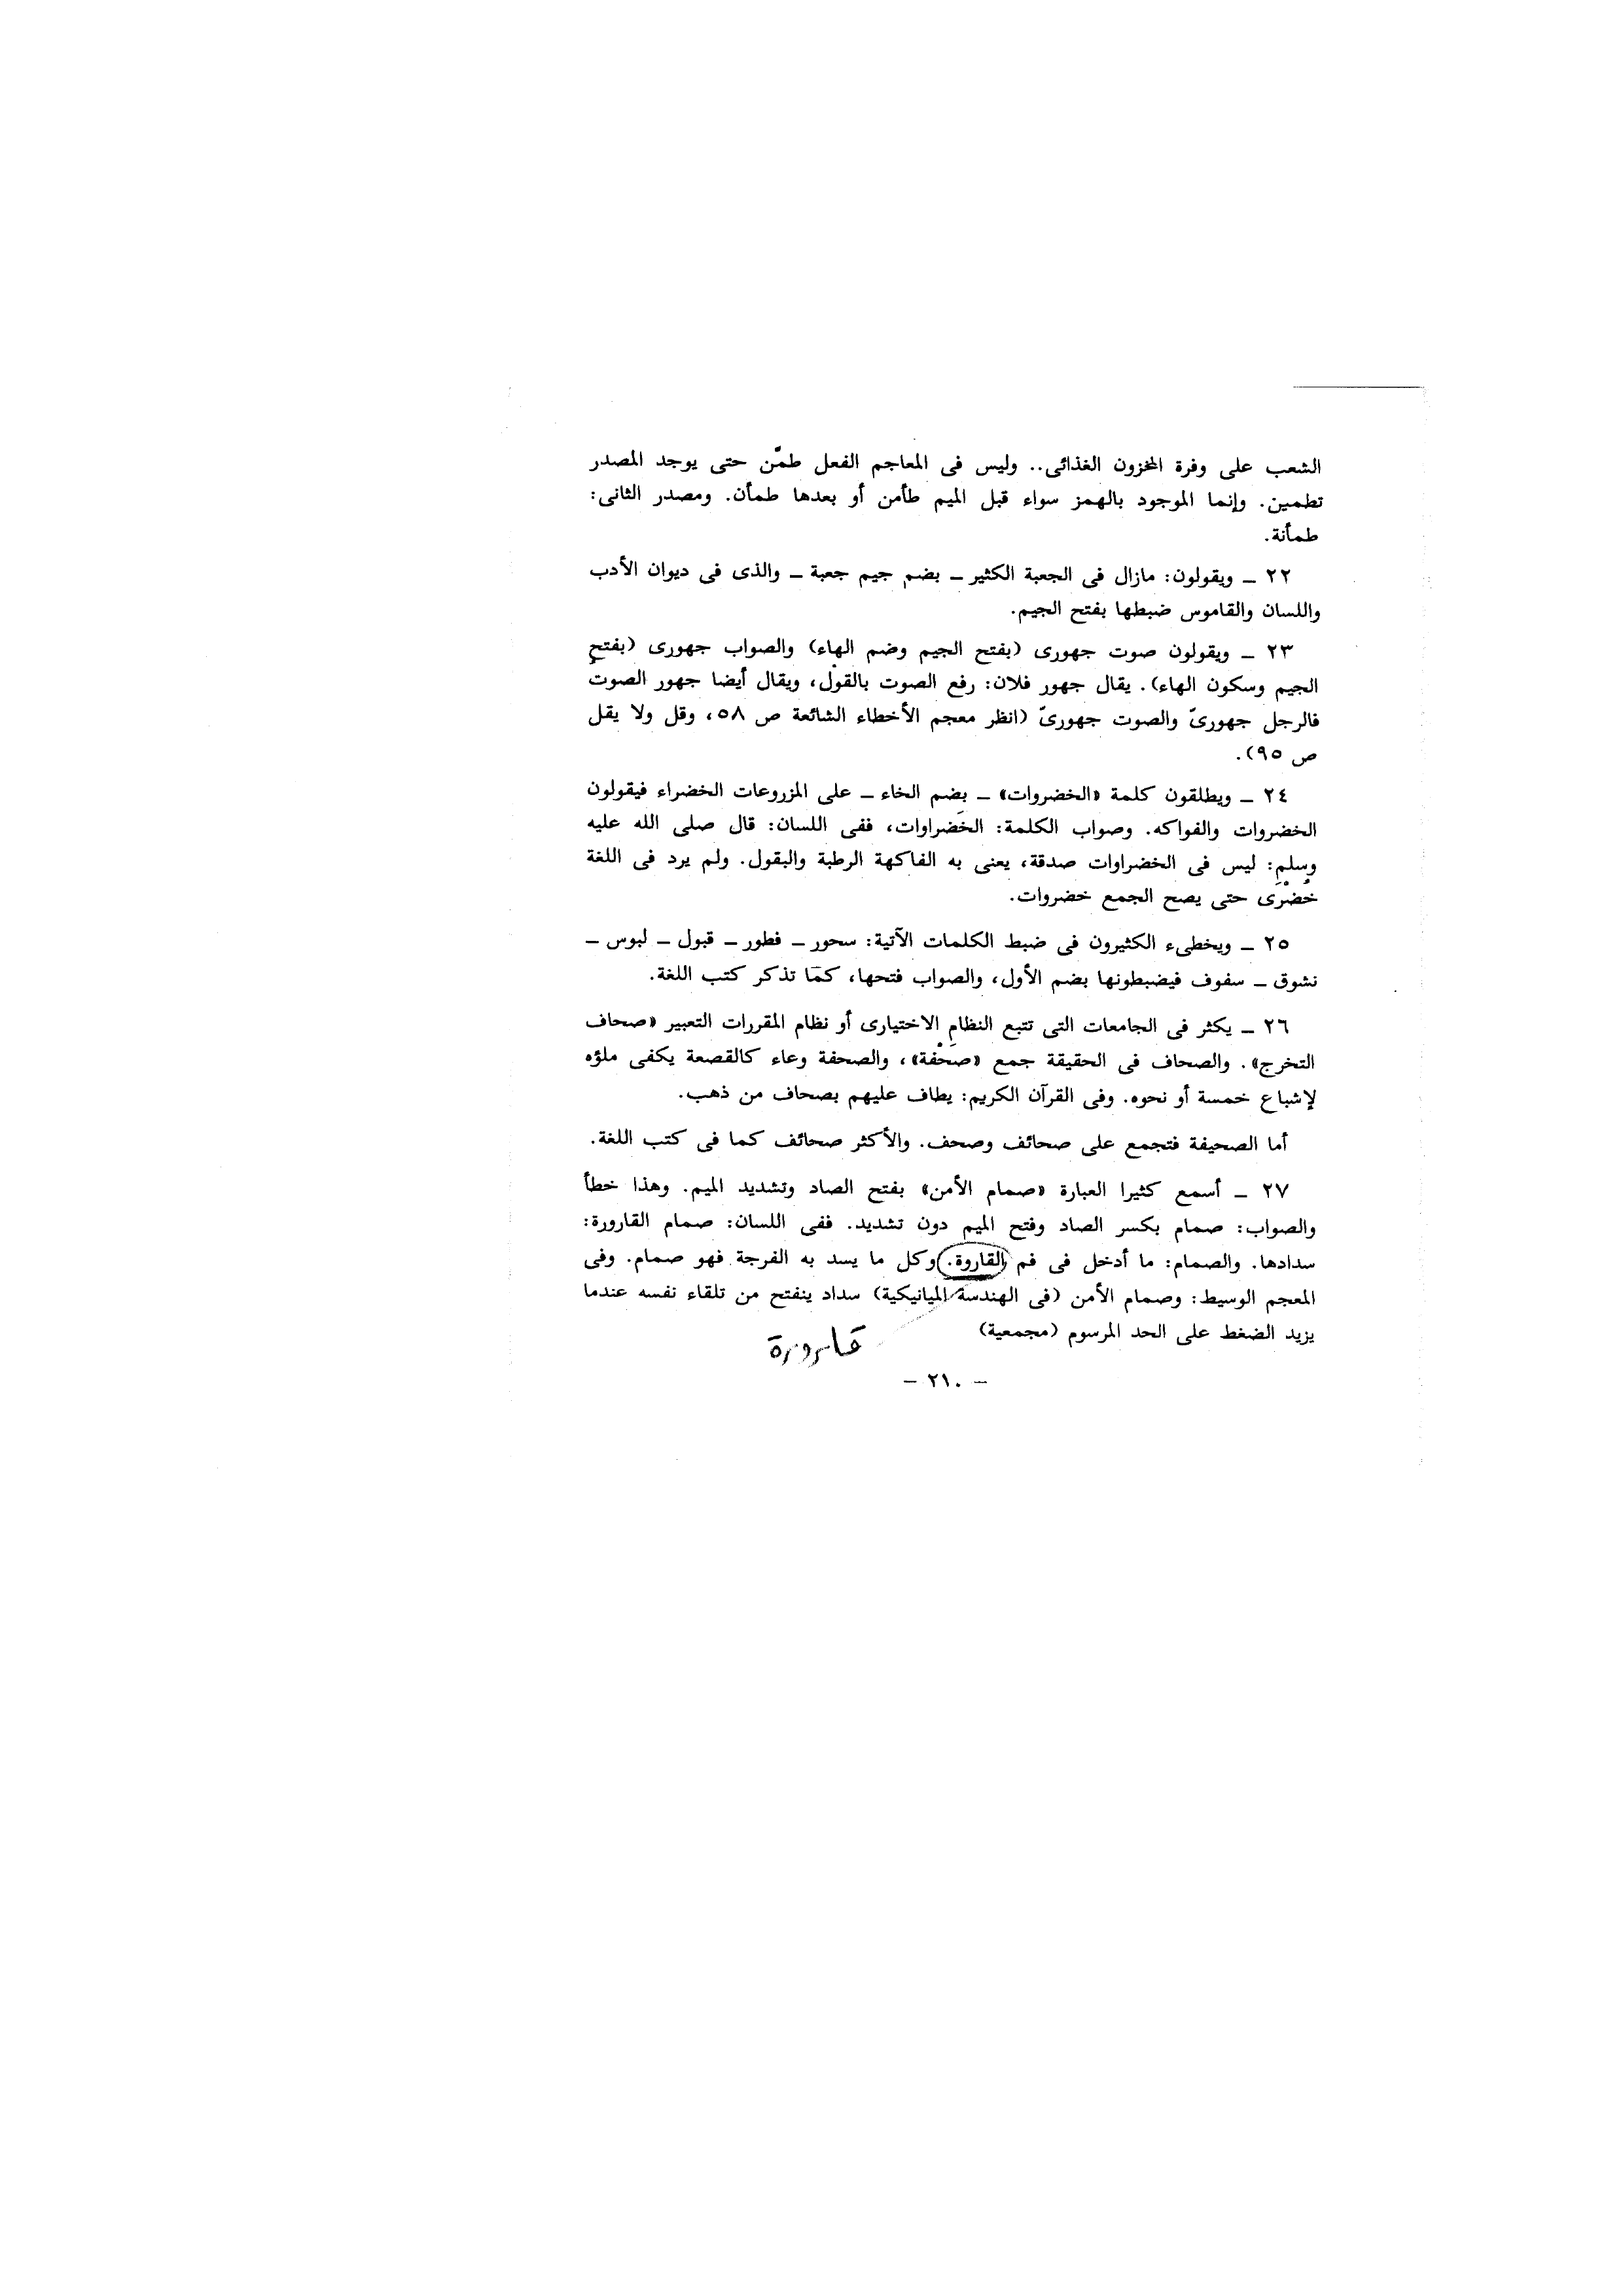 الشعب على وفرة المخزون الغذائى.. وليس فى المعاجم الفعل طمّن حتى يوجد المصدر
تطمين. وإنما الموجود بالهمز سواء قبل الميم طأمن أو بعدها طمأن. ومصدر الثانى:
طمأنة.
٢٢ ـ ويقولون: مازال فى الجعبة الكثير ـ بضم جيم جعبة ـ والذى فى ديوان الأدب
واللسان والقاموس ضبطها بفتح الجيم.
٢٣ ـ ويقولون صوت جهورى (بفتح الجيم وضم الهاء) والصواب جهورى (بفتح
الجيم وسكون الهاء). يقال جهور فلان: رفع الصوت بالقول، ويقال أيضا جهور الصوتُ
فالرجل جهورىّ والصوت جهورىّ (انظر معجم الأخطاء الشائعة ص ٥٨، وقل ولا يقل
ص ٩٥).
٢٤ ـ ويطلقون كلمة «الخضروات» ـ بضم الخاء ـ على المزروعات الخضراء فيقولون
الخضروات والفواكه. وصواب الكلمة: الخَضراوات، ففى اللسان: قال صلى الله عليه
وسلم: ليس فى الخضراوات صدقة، يعنى به الفاكهة الرطبة والبقول. ولم يرد فى اللغة
خُضْرَى حتى يصح الجمع خضروات.
٢٥ ـ ويخطىء الكثيرون فى ضبط الكلمات الآتية: سحور ـ فطور ـ قبول ـ لبوس ـ
نشوق ـ سفوف فيضبطونها بضم الأول، والصواب فتحها، كما تذكر كتب اللغة.
٢٦ ـ يكثر فى الجامعات التى تتبع النظام الاختيارى أو نظام المقررات التعبير «صحاف
التخرج». والصحاف فى الحقيقة جمع «صَحْفة»، والصحفة وعاء كالقصعة يكفى ملؤه
لإشباع خمسة أو نحوه. وفى القرآن الكريم: يطاف عليهم بصحاف من ذهب.
أما الصحيفة فتجمع على صحائف وصحف. والأكثر صحائف كما فى كتب اللغة.
٢٧ ـ أسمع كثيرا العبارة «صمام الأمن» بفتح الصاد وتشديد الميم. وهذا خطأ
والصواب: صمام بكسر الصاد وفتح الميم دون تشديد. ففى اللسان: صمام القارورة:
سدادها. والصمام: ما أدخل فى فم القاروة. وكل ما يسد به الفرجة فهو صمام. وفى
المعجم الوسيط: وصمام الأمن (فى الهندسة الميانيكية) سداد ينفتح من تلقاء نفسه عندما
يزيد الضغط على الحد المرسوم (مجمعية)
قارورة
– ٢١٠ –